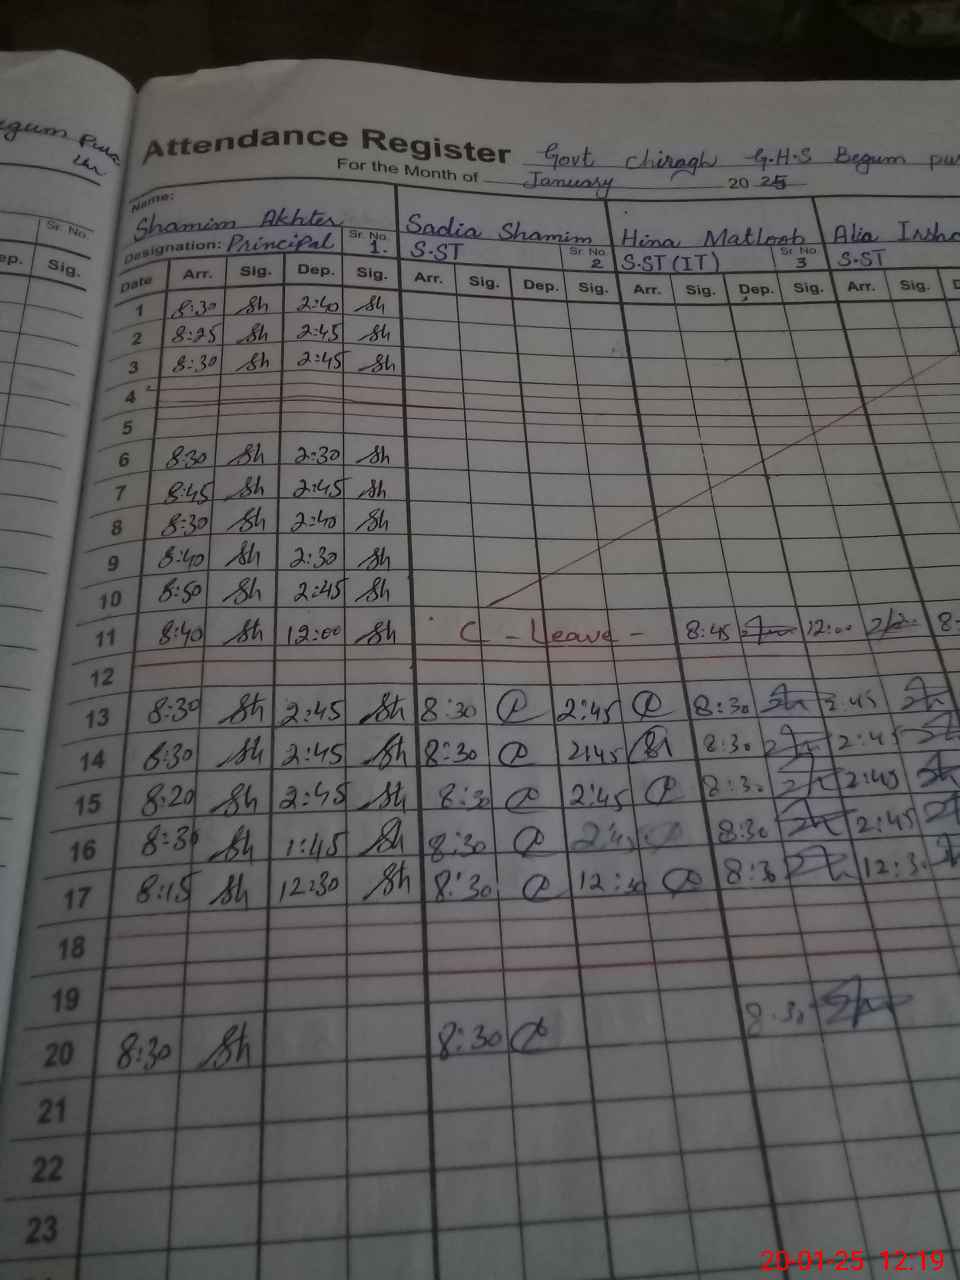 egum Pura
Lhr
Sr. No.
ep. Sig.
Attendance Register Govt Chiragh G.H.S Begum pu
For the Month of January 2025
Name:
Shamim Akhter Sadia Shamim Hina Matloob Alia
Designation: Principal Sr. No. 1. S.ST Sr. No 2 S.ST (IT) Sr. No 3 S.ST
Date Arr. Sig. Dep. Sig. Arr. Sig. Dep. Sig. Arr. Sig. Dep. Sig. Arr. Sig. D
1 8:30 Sh 2:40 Sh
2 8:25 Sh 2:45 Sh
3 8:30 Sh 2:45 Sh
4
5
6 8:30 Sh 2:30 Sh
7 8:45 Sh 2:45 Sh
8 8:30 Sh 2:40 Sh
9 8:40 Sh 2:30 Sh
10 8:50 Sh 2:45 Sh
11 8:40 Sh 12:00 Sh C - Leave - 8:45 12:00 8-
12
13 8:30 Sh 2:45 Sh 8:30 2:45 8:30 2:45
14 8:30 Sh 2:45 Sh 8:30 2:45 8:30 2:45
15 8:20 Sh 2:45 Sh 8:30 2:45 8:30 2:40
16 8:30 Sh 1:45 Sh 8:30 2:45 8:30 2:45
17 8:15 Sh 12:30 Sh 8:30 12:30 8:30 12:30
18
19
20 8:30 Sh 8:30 8:30
21
22
23
20-01-25 12:19